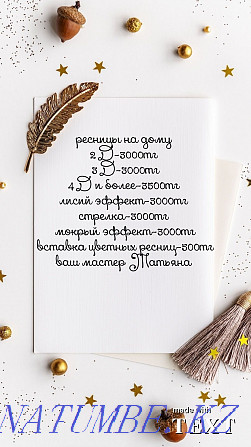 ресницы на дому
2Д-3000тг
3Д-3000тг
4Д и более-3500тг
лисий эффект-3000тг
стрелка-3000тг
мокрый эффект-3000тг
вставка цветных ресниц-500тг
ваш мастер Татьяна
made with
TEXT
NATUMBE.KZ